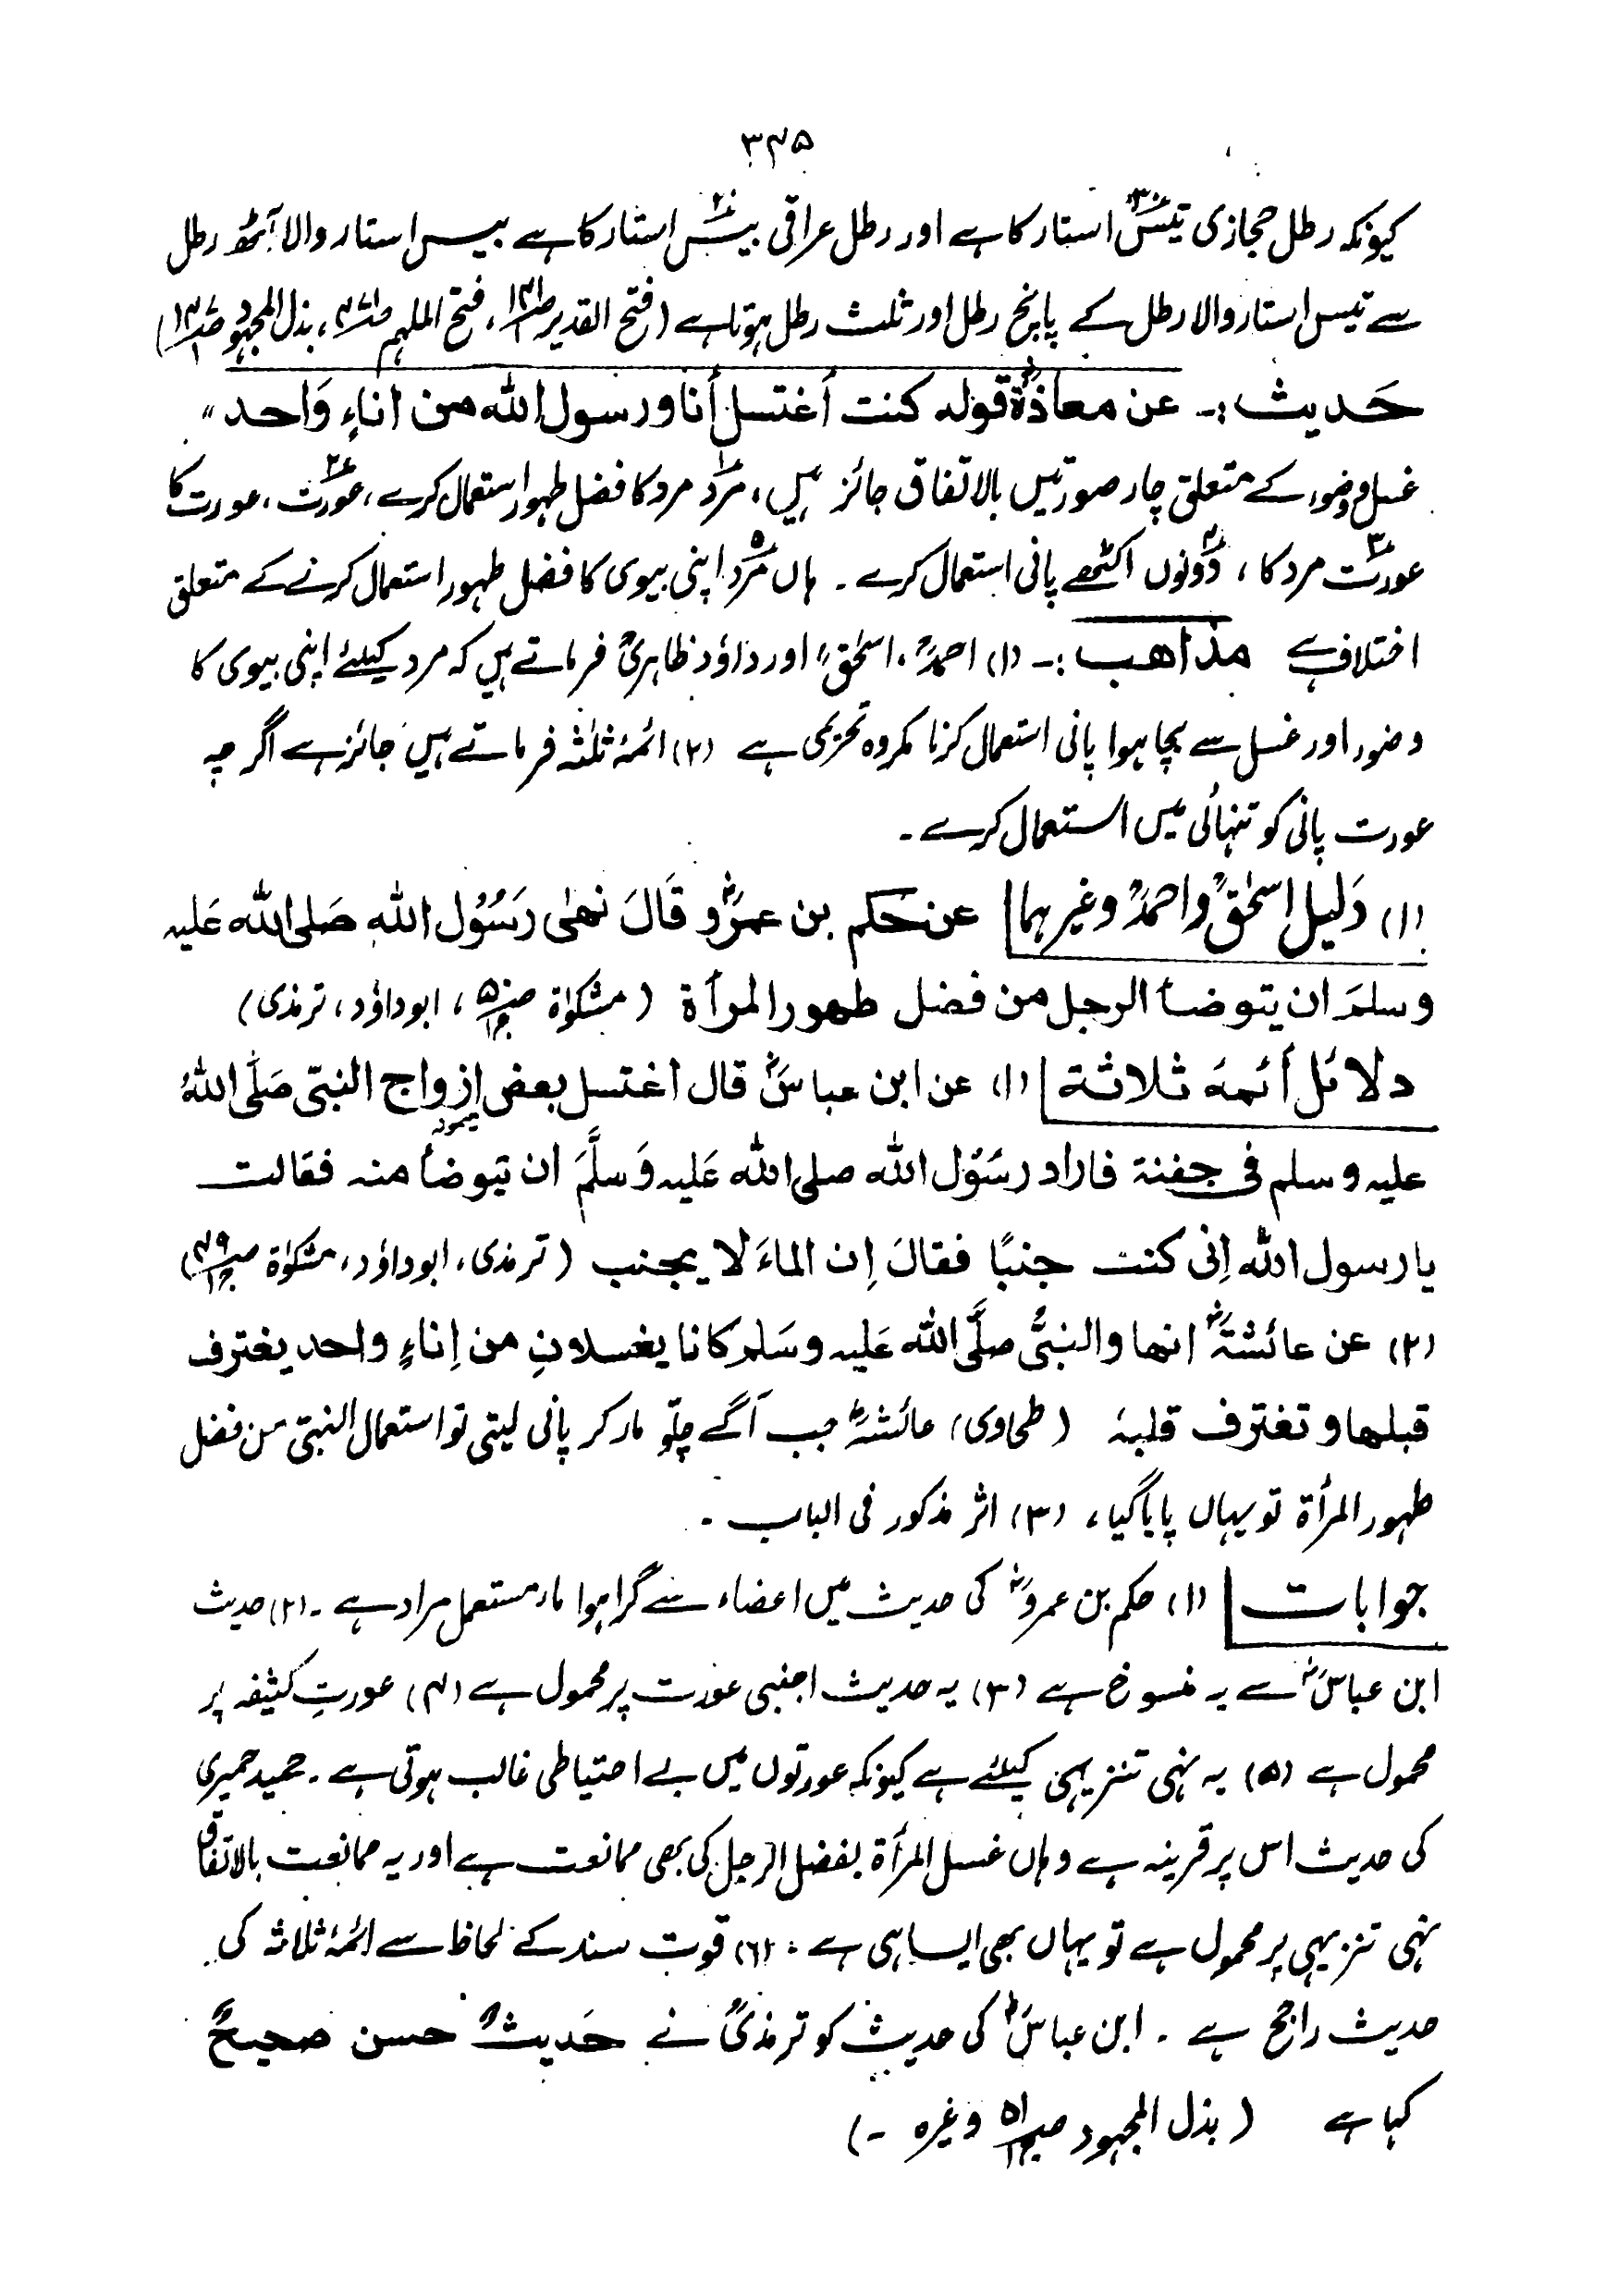 ۳۴۵
کیونکہ رطل حجازی تیسؔ۳۰ استار کا ہے اور رطل عراقی بیسؔ۲۰ استار کا ہے بیس استار والا آٹھ رطل
سے تیس استار والا رطل کے پانچ رطل اور ثلث رطل ہوتا ہے (فتح القدیر، فتح الملہم، بذل المجہود)
حَدیث :۔ عن معاذةؓ قوله کنت أغتسل أنا ورسول الله من اناءٍ وَاحد ״
غسل وضوء کے متعلق چار صورتیں بالاتفاق جائز ہیں، مرؔد۱ مرد کا فضل طہور استعمال کرے، عوؔرت۲، عورت کا
عورؔت۳ مرد کا، دوؔنوں۴ اکٹھے پانی استعمال کرے ۔ ہاں مرؔد۵ اپنی بیوی کا فضل طہور استعمال کرنے کے متعلق
اختلاف ہے مذاهب :۔ (۱) احمدؒ، اسحٰقؒ اور داؤد ظاہریؒ فرماتے ہیں کہ مرد کیلئے اپنی بیوی کا
وضور اور غسل سے بچا ہوا پانی استعمال کرنا مکروہ تحریمی ہے (۲) ائمۂ ثلٰثہ فرماتے ہیں جائز ہے اگر چہ
عورت پانی کو تنہائی میں استعمال کرے ۔
(۱) دَلیل اسحٰقؒ واحمدؒ وغیرہما عن حَکم بن عمرؓو قَالَ نهیٰ رَسُوْل الله صَلی الله عَلیه
وسلمَ ان یتوضأ الرجل من فضل طهور المرأة (مشکوٰۃ ص۵۰، ابوداؤد، ترمذی)
دلائل أئمهٔ ثلاثة (۱) عن ابن عباسؓ قال اغتسل بعض ازواج النبیّ صَلَّی اللهُ
میمونہ
علیه وسلم فی جفنة فاراد رسُوْل الله صلی الله عَلیه وَسلَّمَ ان یتوضأ منه فقالت
یا رسول الله اِنی کنت جنبًا فقالَ اِن الماءَ لا یجنب (ترمذی، ابوداؤد، مشکوٰۃ ص۴۹)
(۲) عن عائشةؓ انها والنبیُّ صلَّی الله عَلیه وسَلم کانا یغسلانِ من اِناءٍ واحد یغترف
قبلها وتغترف قلبهٔ (طحاوی) عائشہؓ جب آگے چلّو مار کر پانی لیتی تو استعمال النبیّ من فضل
طہور المرأۃ تو یہاں پایا گیا، (۳) اثر مذکور فی الباب ۔
جوابات (۱) حکم بن عمروؓ کی حدیث میں اعضاء سے گرا ہوا مار مستعمل مراد ہے ۔ (۲) حدیث
ابن عباسؓ سے یہ منسوخ ہے (۳) یہ حدیث اجنبی عورت پر محمول ہے (۴) عورتِ کثیفہ پر
محمول ہے (۵) یہ نہی تنزیہی کیلئے ہے کیونکہ عورتوں میں بے احتیاطی غالب ہوتی ہے ۔ حمید حمیری
کی حدیث اس پر قرینہ ہے وہاں غسل المرأۃ بفضل الرجل کی بھی ممانعت ہے اور یہ ممانعت بالاتفاق
نہی تنزیہی پر محمول ہے تو یہاں بھی ایسا ہی ہے ۔ (۶) قوت سند کے لحاظ سے ائمۂ ثلاثہ کی
حدیث راجح ہے ۔ ابن عباسؓ کی حدیث کو ترمذیؒ نے حَدیثٌ حسن صحیحٌ
کہا ہے (بذل المجہود ص۵۱ وغیرہ ۔)